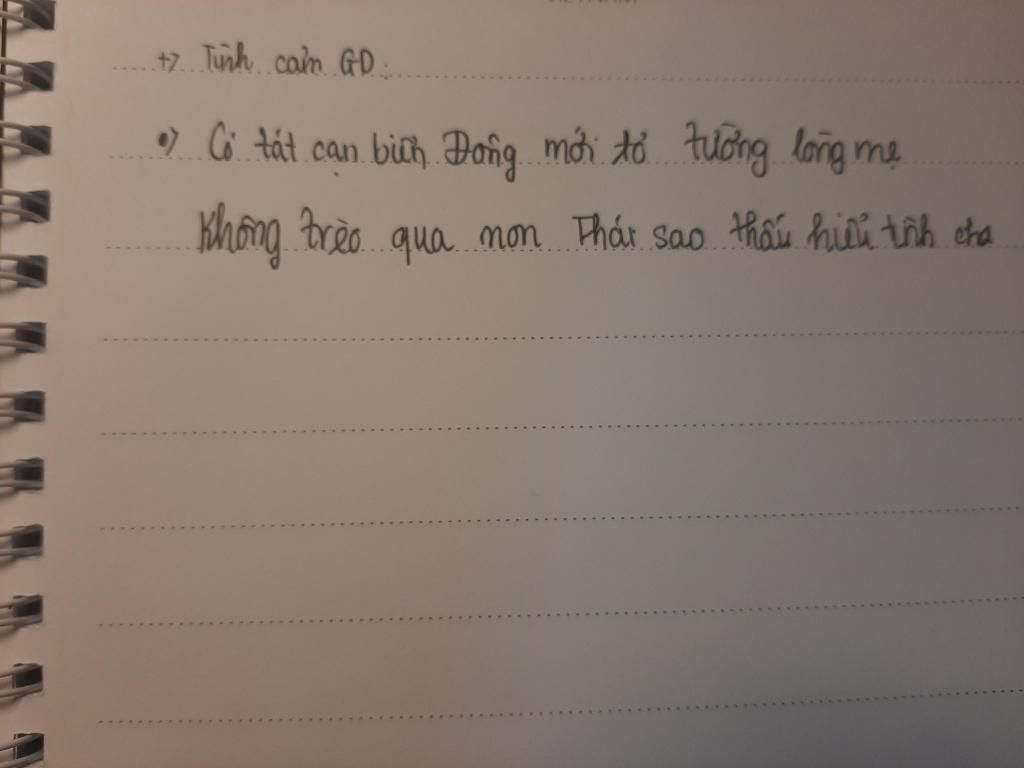 +> Tình cảm GĐ:
•> Có tát cạn biển Đông mới tỏ tường lòng mẹ
Không trèo qua non Thái sao thấu hiểu tình cha